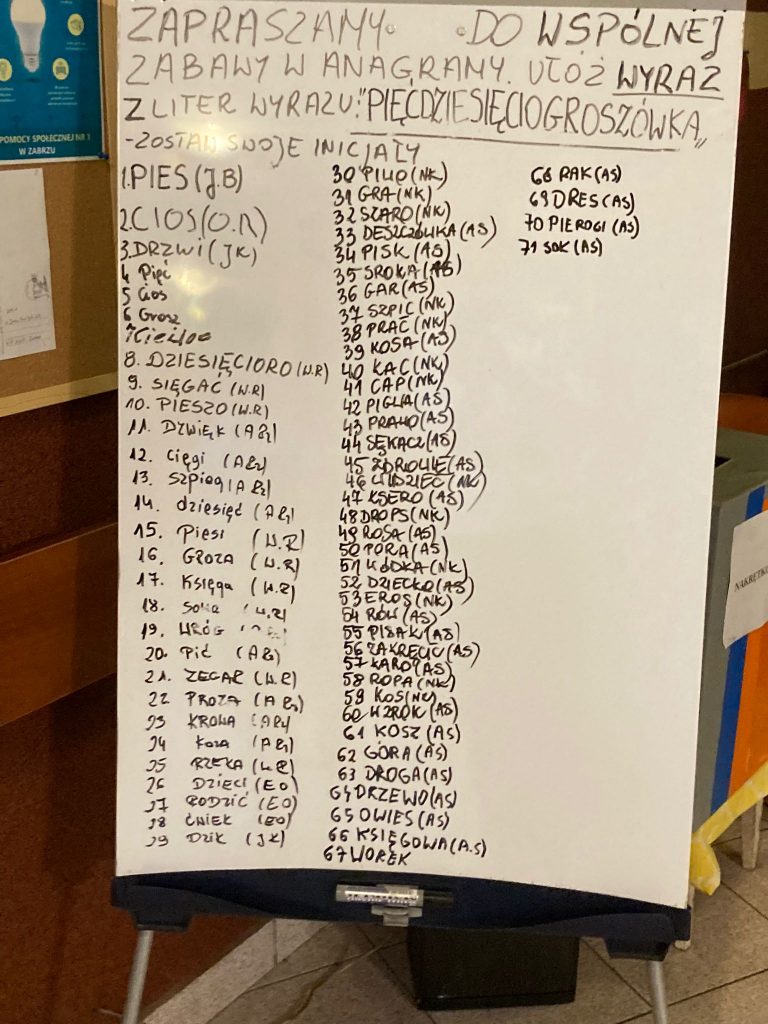 POMOCY SPOŁECZNEJ NR 1
W ZABRZU
ZAPRASZAMY DO WSPÓLNEJ
ZABAWY W ANAGRAMY. UŁÓŻ WYRAZ
Z LITER WYRAZU: "PIĘĆDZIESIĘCIOGROSZÓWKA"
-ZOSTAW SWOJE INICJAŁY
1. PIES (J.B)
2. CIOS (O.R)
3. DRZWI (JK)
4 Pięć
5 Cios
6 Grosz
8. DZIESIĘCIORO (W.R)
9. SIĘGAĆ (W.R)
10. PIESZO (W.R)
11. DZWIĘK (ARz)
12. Cięgi (ARz)
13. Szpieg (ARz)
14. dziesięć (ARz)
15. Piesi (W.R)
16. GROZA (W.R)
17. Księga (W.R)
18. SOWA (W.R)
19. WRÓG
20. Pić (ARz)
21. ZEGAR (W.R)
22 PROZA (ARz)
23 KROWA (ARz)
24 Koza (ARz)
25 RZEKA (W.R)
26 DZIECI (EO)
27 RODZIĆ (EO)
28 ĆWIEK (EO)
29 DZIK (JK)
30 PIWO (NK)
31 GRA (NK)
32 SZARO (NK)
33 DESZCZÓWKA (AS)
34 PISK (AS)
35 SROKA (AS)
36 GAR (AS)
37 SZPIC (NK)
38 PRAĆ (NK)
39 KOSA (AS)
40 KAC (NK)
41 CAP (NK)
42 PIGWA (AS)
43 PRAWO (AS)
44 SĘKACZ (AS)
45 ZDROWIE (AS)
46 WIDZIEĆ (NK)
47 KSERO (AS)
48 DROPS (NK)
49 ROSA (AS)
50 PORA (AS)
51 WÓDKA (NK)
52 DZIECKO (AS)
53 EROS (NK)
54 RÓW (AS)
55 PISAK (AS)
56 ZAKRĘCIĆ (AS)
57 KARO (AS)
58 ROPA (NK)
59 KOS (NK)
60 WZROK (AS)
61 KOSZ (AS)
62 GÓRA (AS)
63 DROGA (AS)
64 DRZEWO (AS)
65 OWIES (AS)
66 KSIĘGOWA (A.S)
67 WOREK
68 RAK (AS)
69 DRES (AS)
70 PIEROGI (AS)
71 SOK (AS)